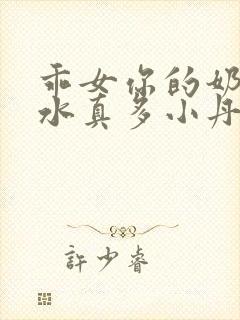 乖女你的奶
水真多小丹
許少睿